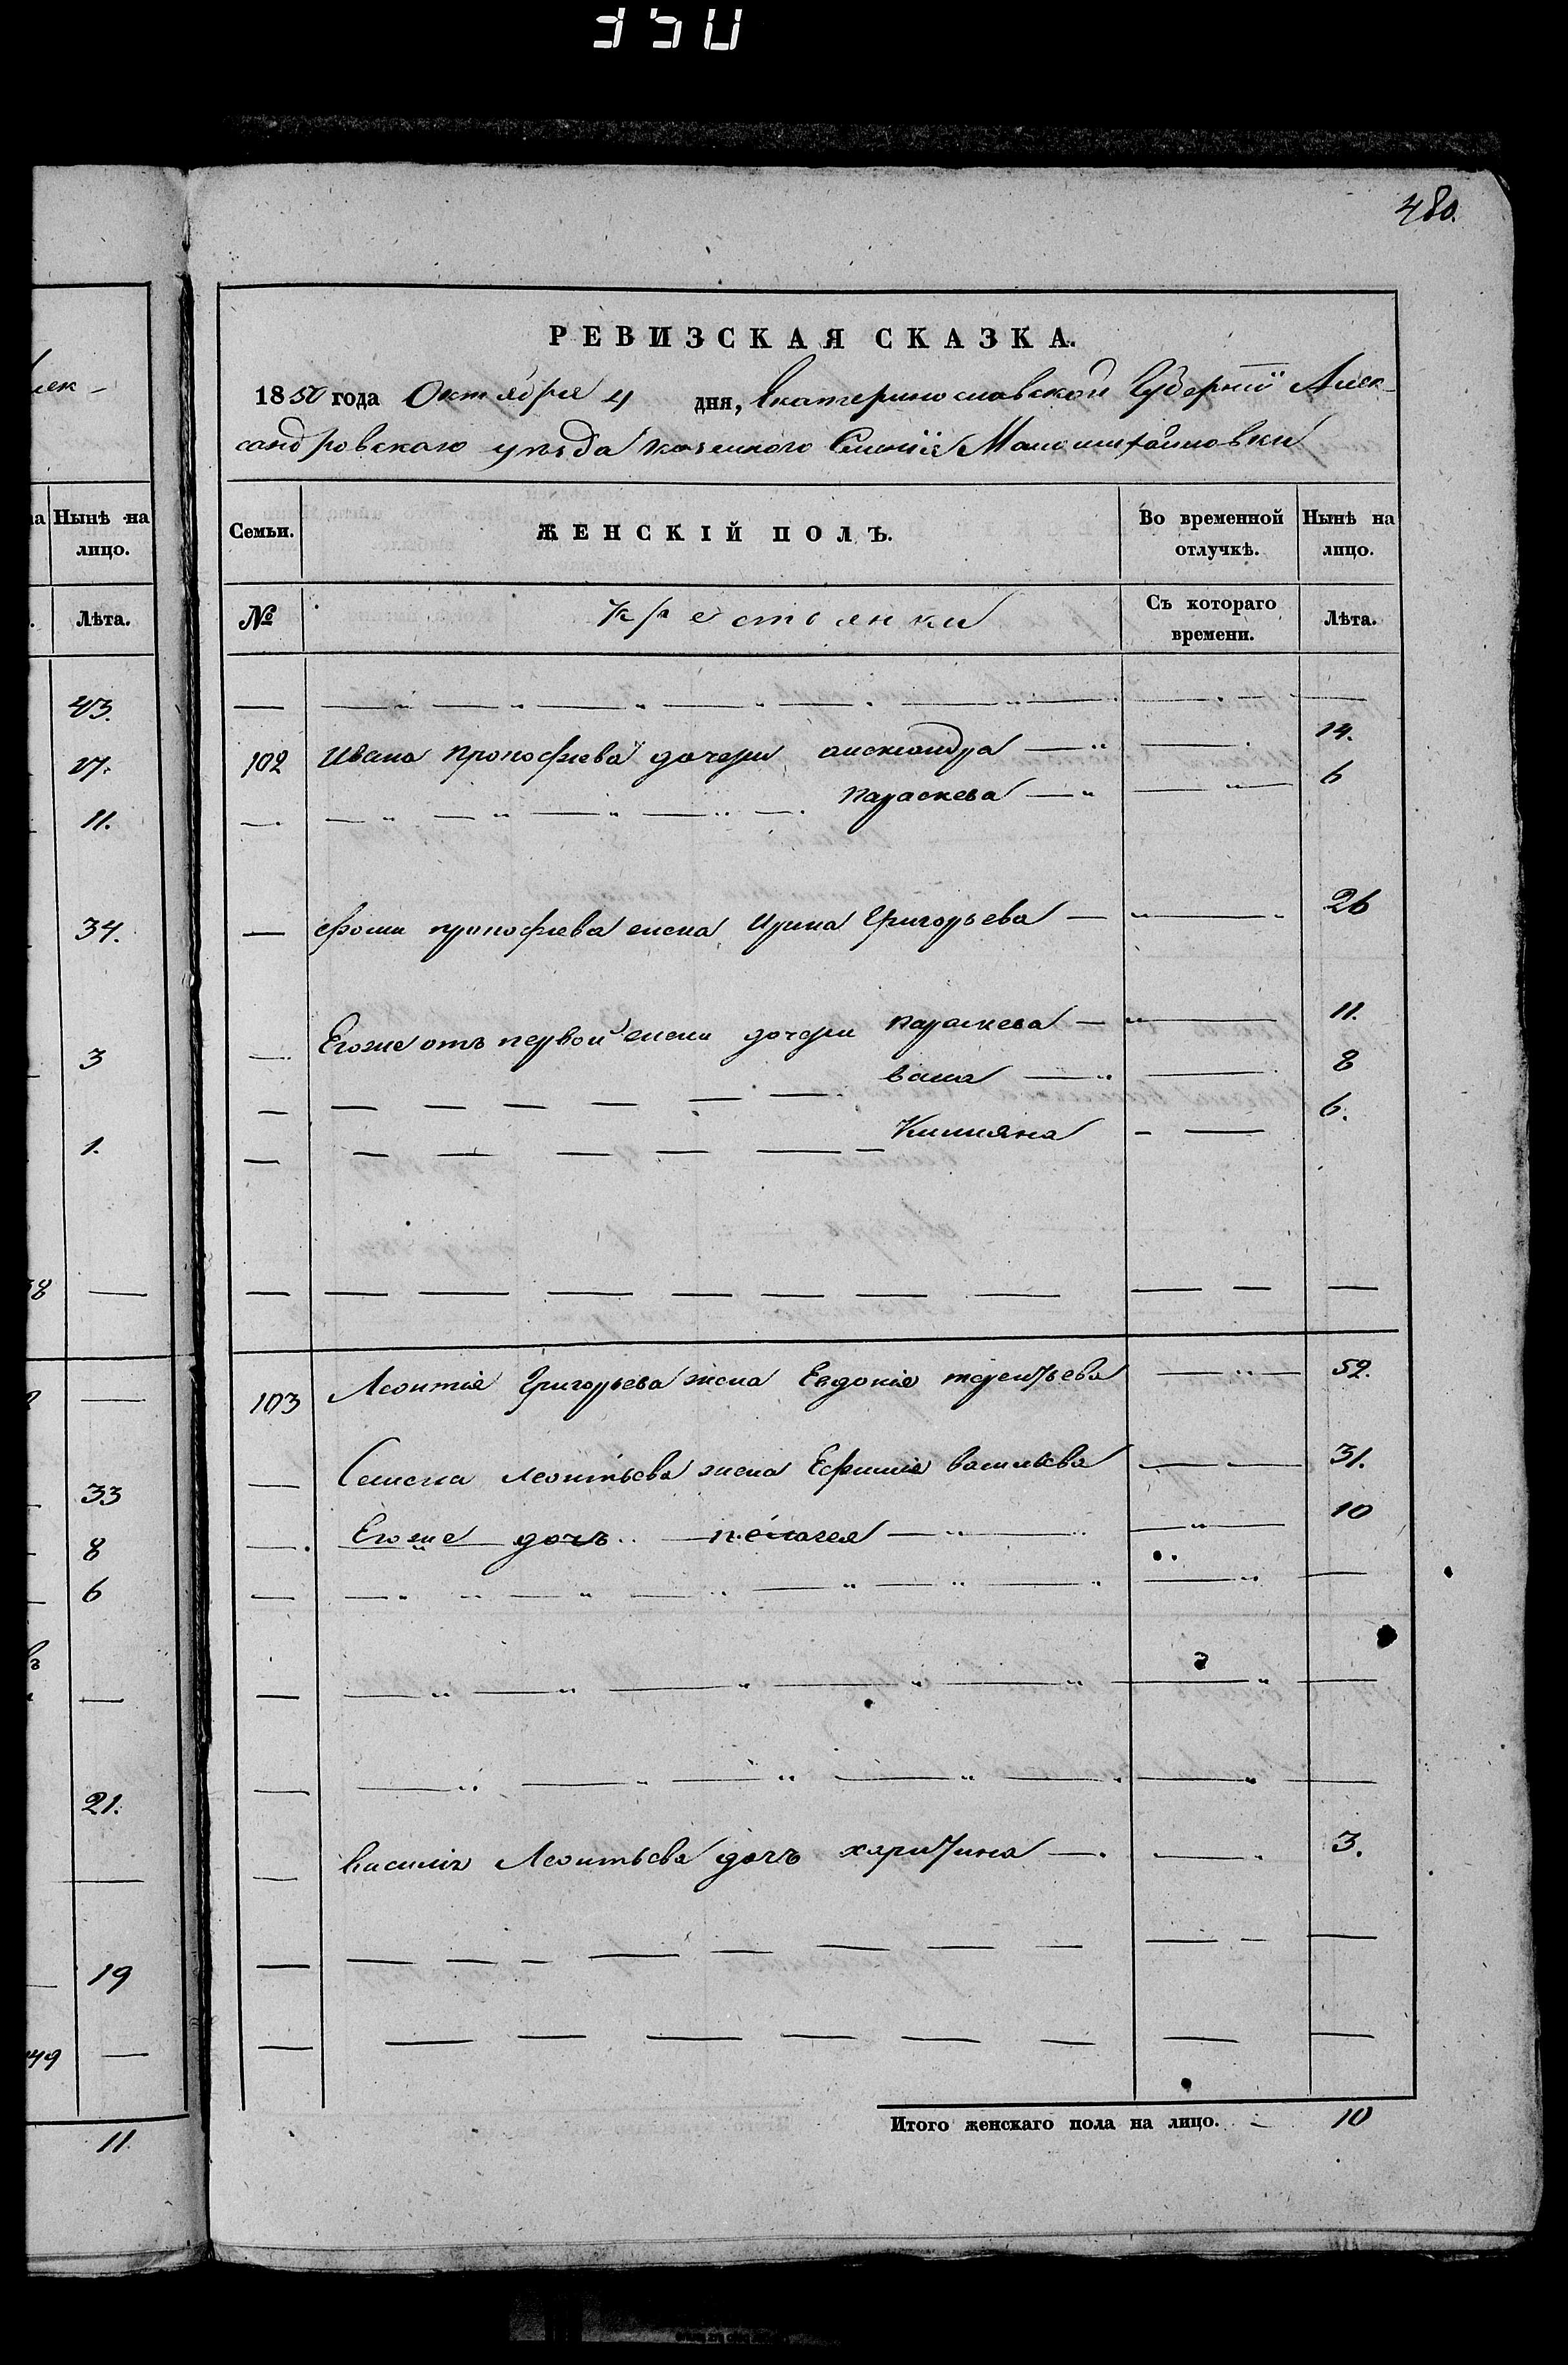 350
480.
РЕВИЗСКАЯ СКАЗКА.
1850 года Октября 4 дня, Екатеринославской Губернїи Алек-
сандровскаго уѣзда казеннаго Селенїя Маломихайловки
Семьи.
ЖЕНСКІЙ ПОЛЪ.
Во временной отлучкѣ.
Нынѣ на лицо.
№
Крестьянки
Съ котораго времени.
Лѣта.
102 Ивана Прокофьева дочери александра 14.
Параскева 6
Фомы прокофьева жена Ирина Григорьева 26
Егоже отъ первой жены дочери параскева 11.
васа 8
Килияна 6.
103 Леонтия Григорьева жена Евдокия терентьева 52.
Семена леонтьева жена Ефимия васильева 31.
Егоже дочь пелагея 10
василия Леонтьева дочь харитина 3.
Итого женскаго пола на лицо. 10
лек-
Нынѣ на лицо.
Лѣта.
43.
27.
11.
34.
3
1.
33
8
6
21.
19
49
11.